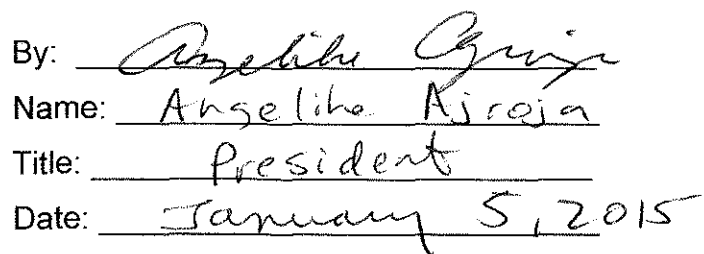 By: Angelika
Name: Angelika Ajroja
Title: President
Date: January 5, 2015